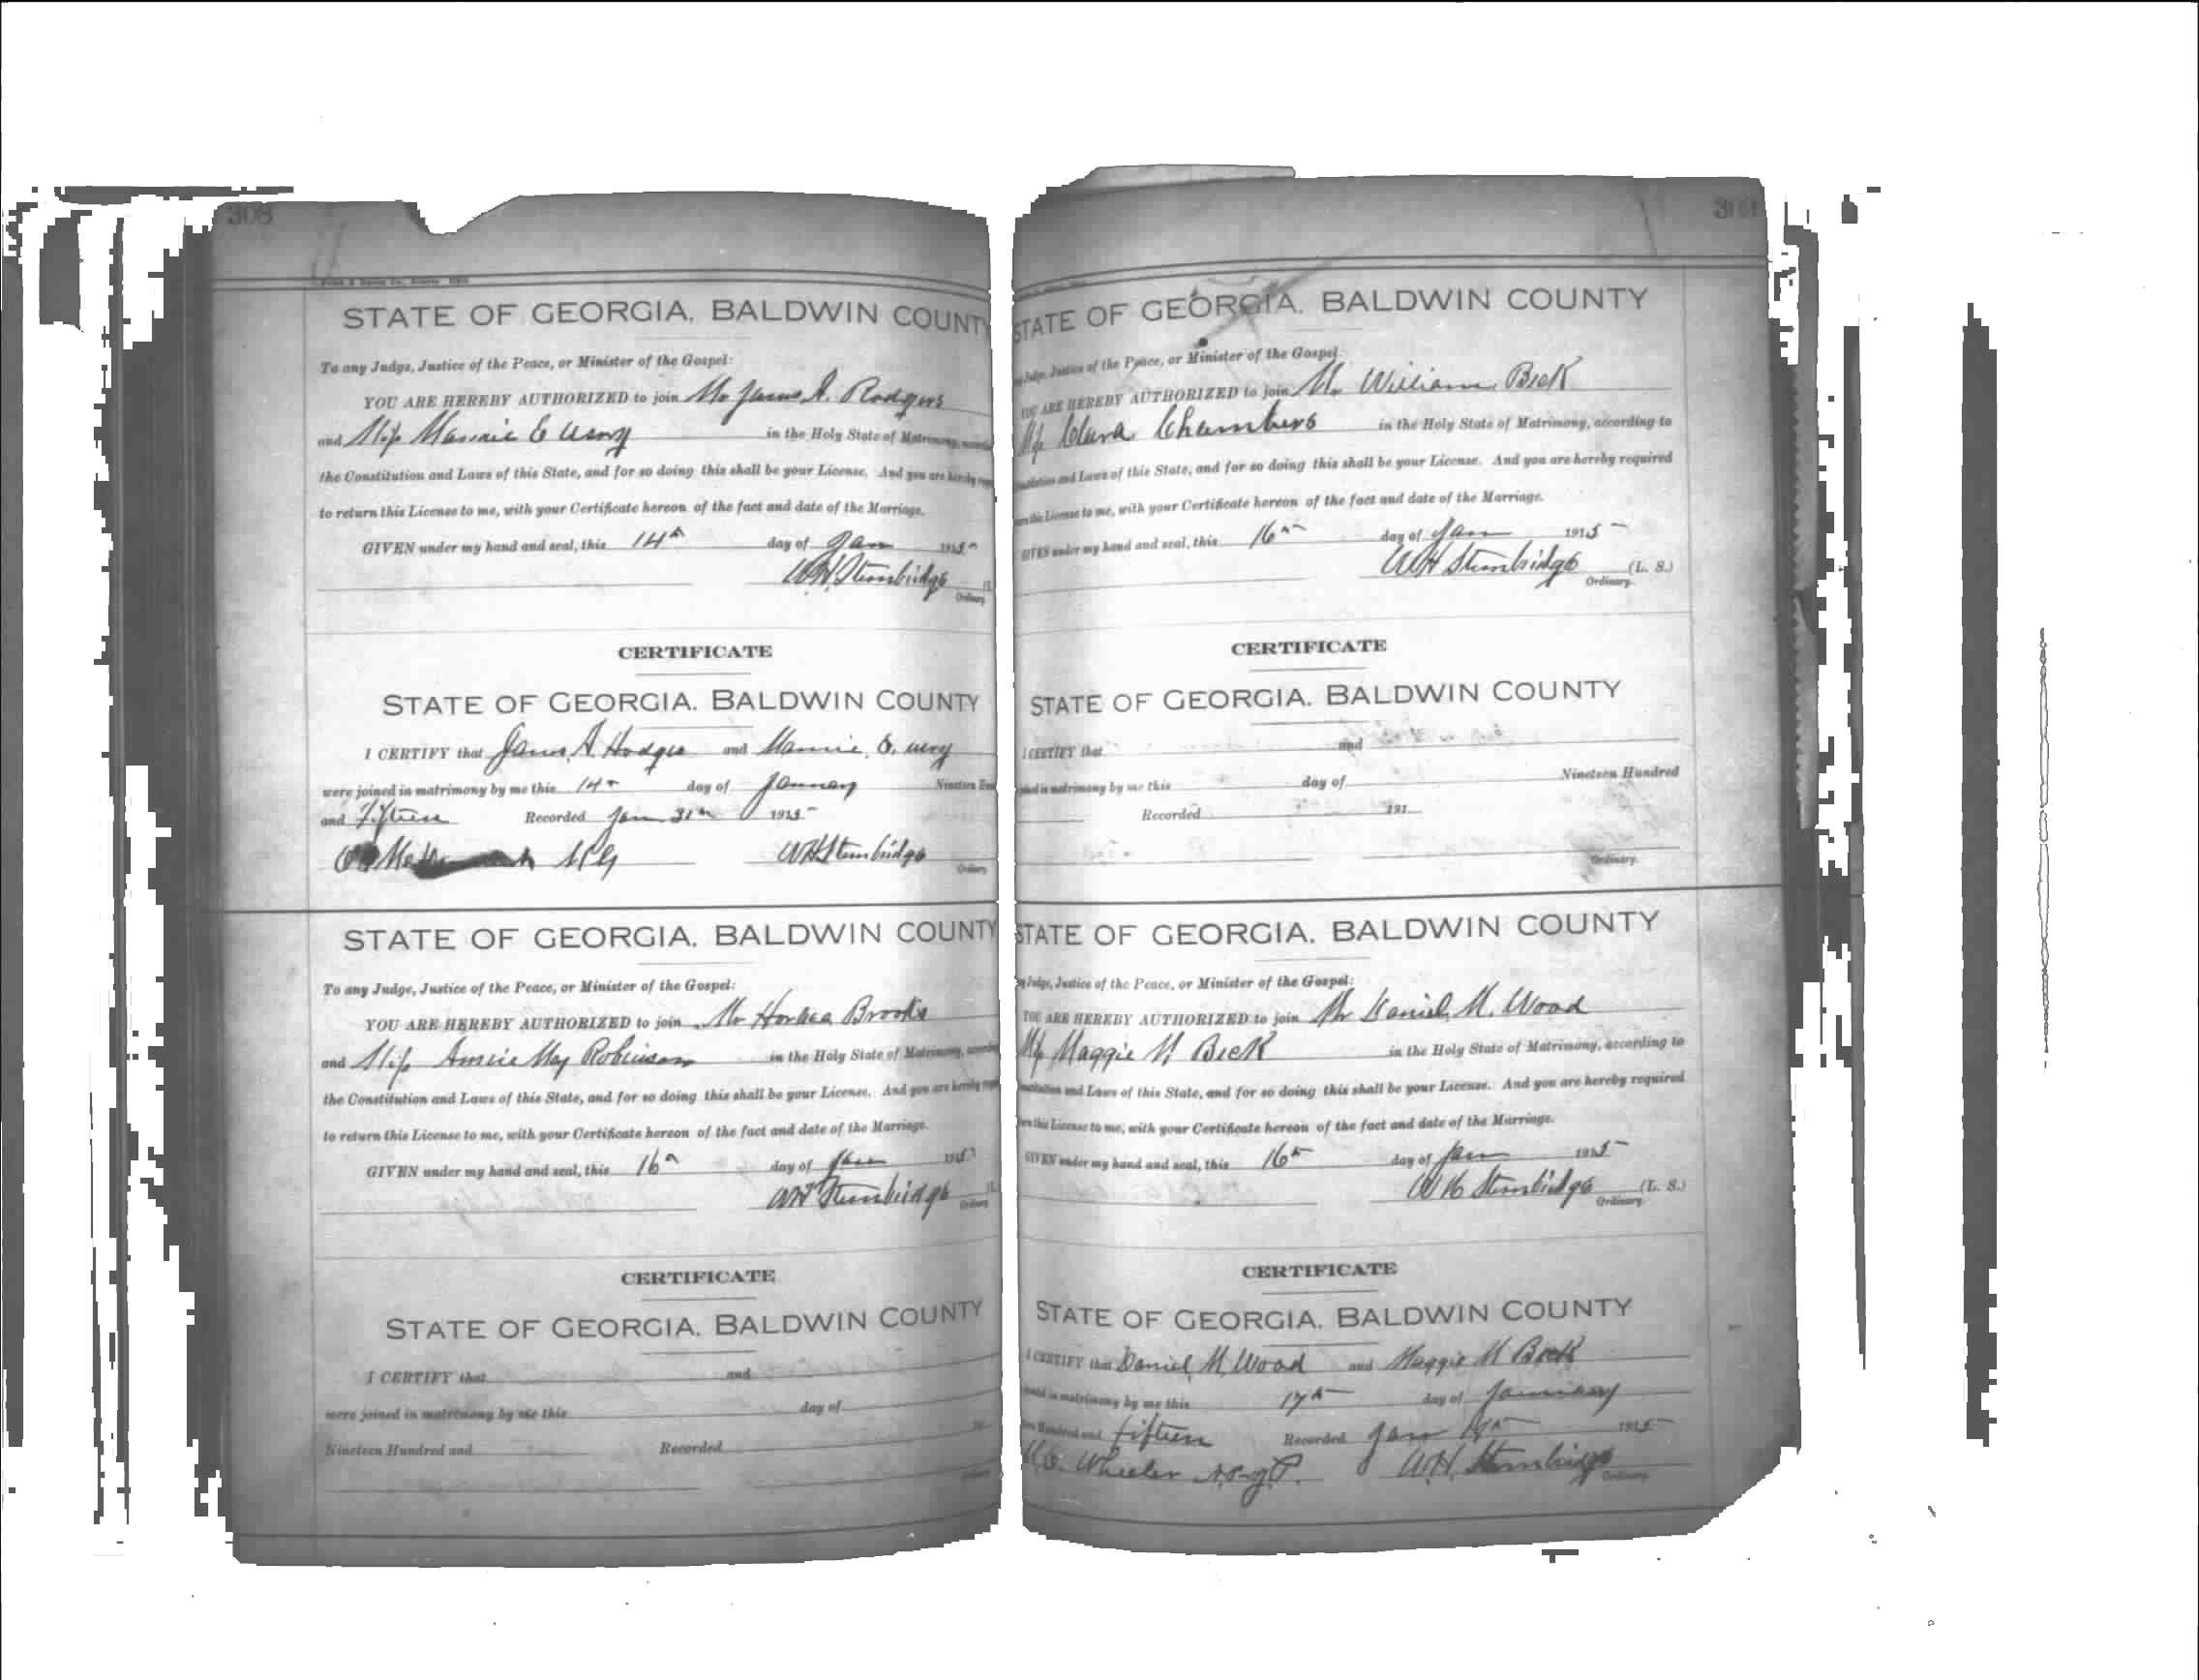 308
STATE OF GEORGIA, BALDWIN COUNTY
To any Judge, Justice of the Peace, or Minister of the Gospel:
YOU ARE HEREBY AUTHORIZED to join Mr James A. Rodgers
and Miss Mannie E
in the Holy State of Matrimony,
the Constitution and Laws of this State, and for so doing this shall be your License. And you are hereby
to return this License to me, with your Certificate hereon of the fact and date of the Marriage.
GIVEN under my hand and seal, this 14th day of Jan 1915
WH Stembridge
Ordinary
CERTIFICATE
STATE OF GEORGIA, BALDWIN COUNTY
I CERTIFY that James A. Hodges and Mannie E.
were joined in matrimony by me this 14th day of January Nineteen
and Fifteen Recorded Jan 31st 1915
WH Stembridge
Ordinary
STATE OF GEORGIA, BALDWIN COUNTY
To any Judge, Justice of the Peace, or Minister of the Gospel:
YOU ARE HEREBY AUTHORIZED to join Mr Brooks
and Miss Annie May Robinson in the Holy State of Matrimony,
the Constitution and Laws of this State, and for so doing this shall be your License. And you are hereby
to return this License to me, with your Certificate hereon of the fact and date of the Marriage.
GIVEN under my hand and seal, this 16th day of Jan 1915
WH Stembridge
Ordinary
CERTIFICATE
STATE OF GEORGIA, BALDWIN COUNTY
I CERTIFY that and
were joined in matrimony by me this day of
Nineteen Hundred and Recorded
309
STATE OF GEORGIA, BALDWIN COUNTY
Judge, Justice of the Peace, or Minister of the Gospel:
YOU ARE HEREBY AUTHORIZED to join Mr William Beck
Miss Clara Chambers in the Holy State of Matrimony, according to
and Laws of this State, and for so doing this shall be your License. And you are hereby required
this License to me, with your Certificate hereon of the fact and date of the Marriage.
GIVEN under my hand and seal, this 16th day of Jan 1915
WH Stembridge (L. S.)
Ordinary.
CERTIFICATE
STATE OF GEORGIA, BALDWIN COUNTY
I CERTIFY that and
in matrimony by me this day of Nineteen Hundred
Recorded 191
Ordinary.
STATE OF GEORGIA, BALDWIN COUNTY
Judge, Justice of the Peace, or Minister of the Gospel:
YOU ARE HEREBY AUTHORIZED to join Mr Daniel M. Wood
Miss Maggie M Beck in the Holy State of Matrimony, according to
and Laws of this State, and for so doing this shall be your License. And you are hereby required
this License to me, with your Certificate hereon of the fact and date of the Marriage.
GIVEN under my hand and seal, this 16th day of Jan 1915
WH Stembridge (L. S.)
Ordinary.
CERTIFICATE
STATE OF GEORGIA, BALDWIN COUNTY
I CERTIFY that Daniel M. Wood and Maggie M Beck
in matrimony by me this 17th day of January
Hundred and fifteen Recorded Jan 1915
Wheeler W.H. Stembridge
Ordinary.